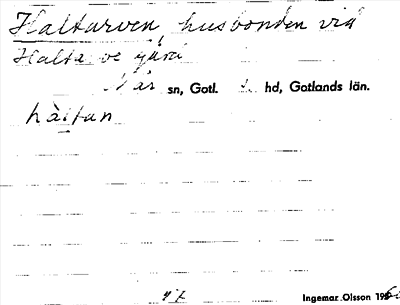 Haltarven, husbonden vid
Halta ve gård
När sn, Gotl. hd, Gotlands län.
haitan
Ingemar Olsson 196